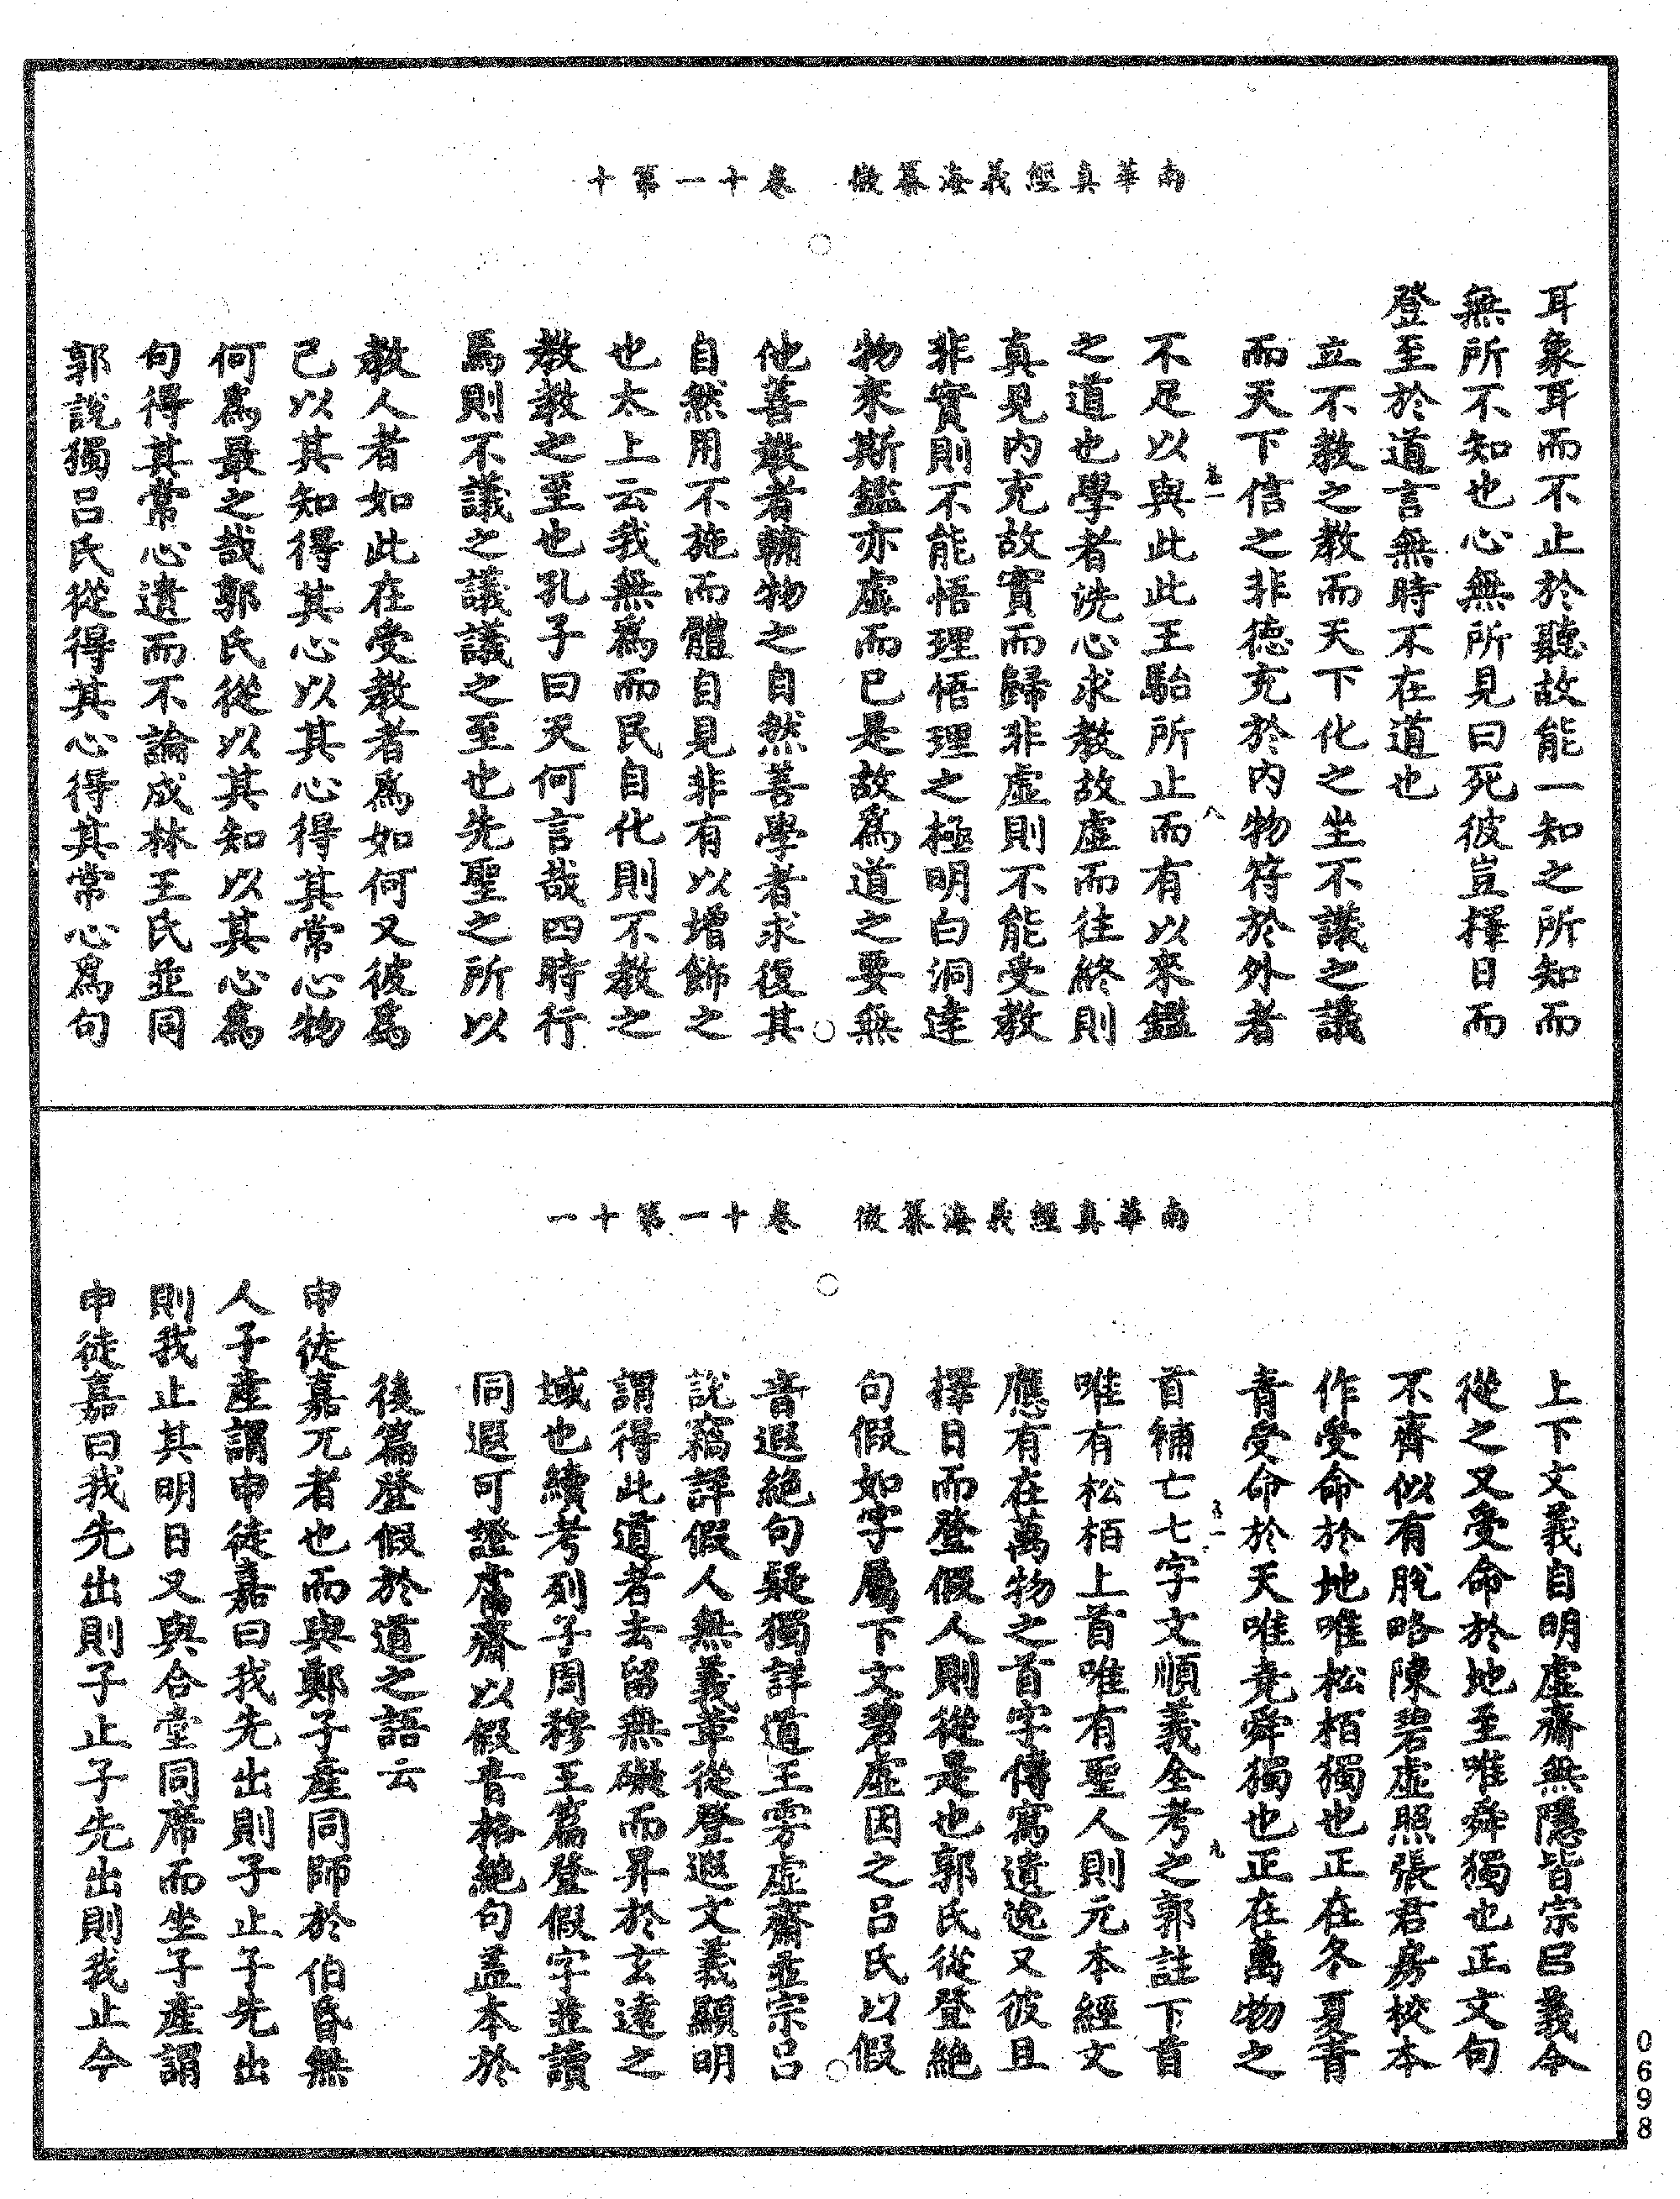 南華真經義海纂微　卷十一第十
耳象耳而不止於聽故能一知之所知而
無所不知也心無所見曰死彼豈擇日而
登至於道言無時不在道也
立不教之教而天下化之坐不議之議
而天下信之非德充於內物符於外者
不足以與此此王駘所止而有以來鑑
之道也學者洗心求教故虛而往終則
真見內充故實而歸非虛則不能受教
非實則不能悟理悟理之極明白洞達
物來斯鑑亦虛而已是故為道之要無
他善教者輔物之自然善學者求復其
自然用不施而體自見非有以增飾之
也太上云我無為而民自化則不教之
教教之至也孔子曰天何言哉四時行
焉則不議之議議之至也先聖之所以
教人者如此在受教者為如何又彼為
己以其知得其心以其心得其常心物
何為最之哉郭氏從以其知以其心為
句得其常心遺而不論成林王氏並同
郭說獨呂氏從得其心得其常心為句
南華真經義海纂微　卷十一第十一
上下文義自明虛齋無隱皆宗呂義今
從之又受命於地至唯舜獨也正文句
不齊似有脫略陳碧虛照張君房校本
作受命於地唯松栢獨也正在冬夏青
青受命於天唯堯舜獨也正在萬物之
首補亡七字文順義全考之郭註下首
唯有松栢上首唯有聖人則元本經文
應有在萬物之首字傳寫遺逸又彼且
擇日而登假人則從是也郭氏從登絕
句假如字屬下文碧虛因之呂氏以假
音遐絕句疑獨詳道王雱虛齋並宗呂
說竊詳假人無義章從登遐文義顯明
謂得此道者去留無礙而昇於玄遠之
域也續考列子周穆王篇登假字並讀
同遐可證虛齋以假音格絕句蓋本於
後篇登假於道之語云
申徒嘉兀者也而與鄭子產同師於伯昏無
人子產謂申徒嘉曰我先出則子止子先出
則我止其明日又與合堂同席而坐子產謂
申徒嘉曰我先出則子止子先出則我止今
0698